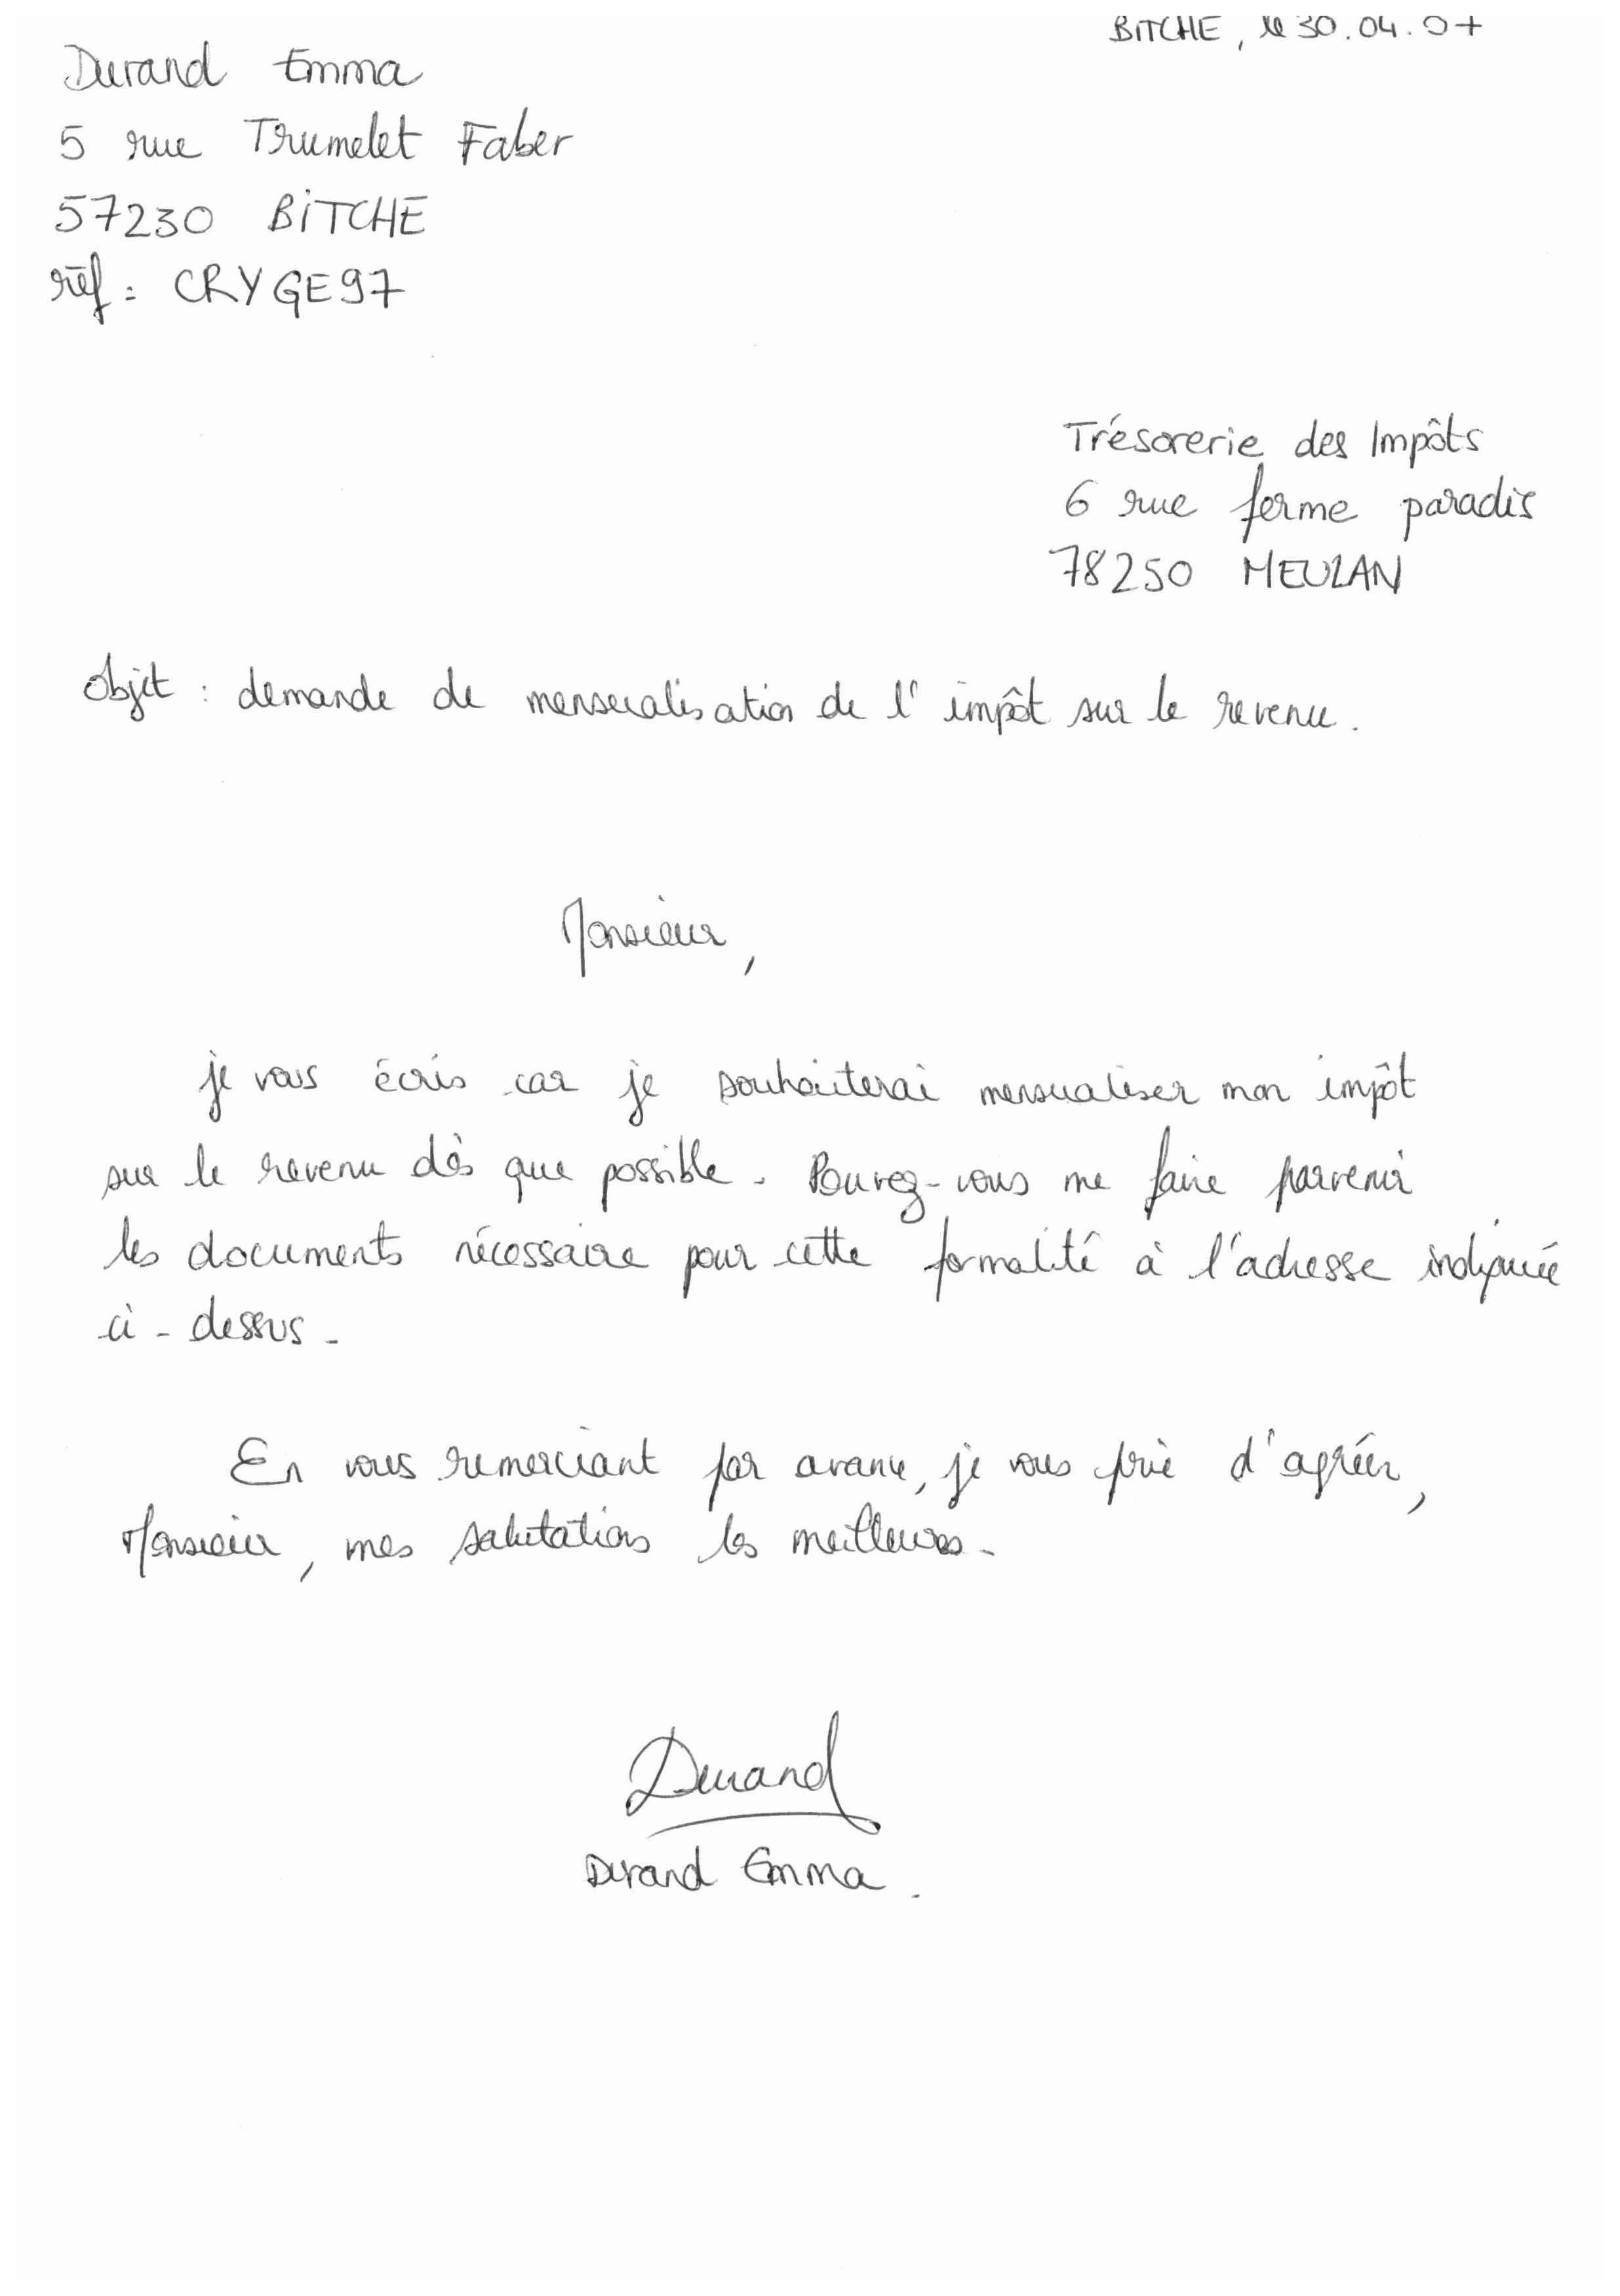 BITCHE, le 30.04.07
Durand Emma
5 rue Trumelet Faber
57230 BITCHE
réf : CRYGE97
Trésorerie des Impôts
6 rue ferme paradis
78250 MEULAN
Objet : demande de mensualisation de l'impôt sur le revenu.
Monsieur,
je vous écris car je souhaiterai mensualiser mon impôt
sur le revenu dès que possible. Pouvez-vous me faire parvenir
les documents nécessaire pour cette formalité à l'adresse indiquée
ci-dessus.
En vous remerciant par avance, je vous prie d'agréer,
Monsieur, mes salutations les meilleures.
Durand
Durand Emma.